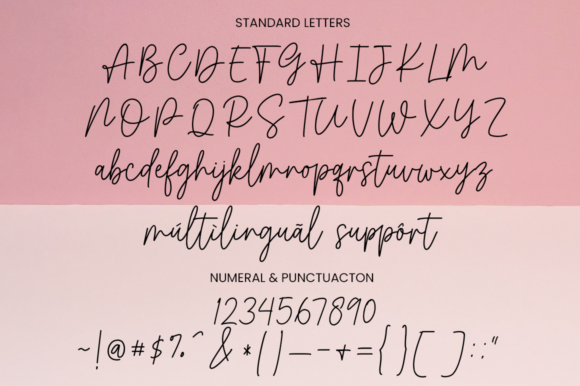 STANDARD LETTERS
ABCDEFGHIJKLM
NOPQRSTUVWXYZ
abcdefghijklmnopqrstuvwxyz
múltilinguãl suppôrt
NUMERAL & PUNCTUACTON
1234567890
~!@#$%^&*()—-+={}[]:;"